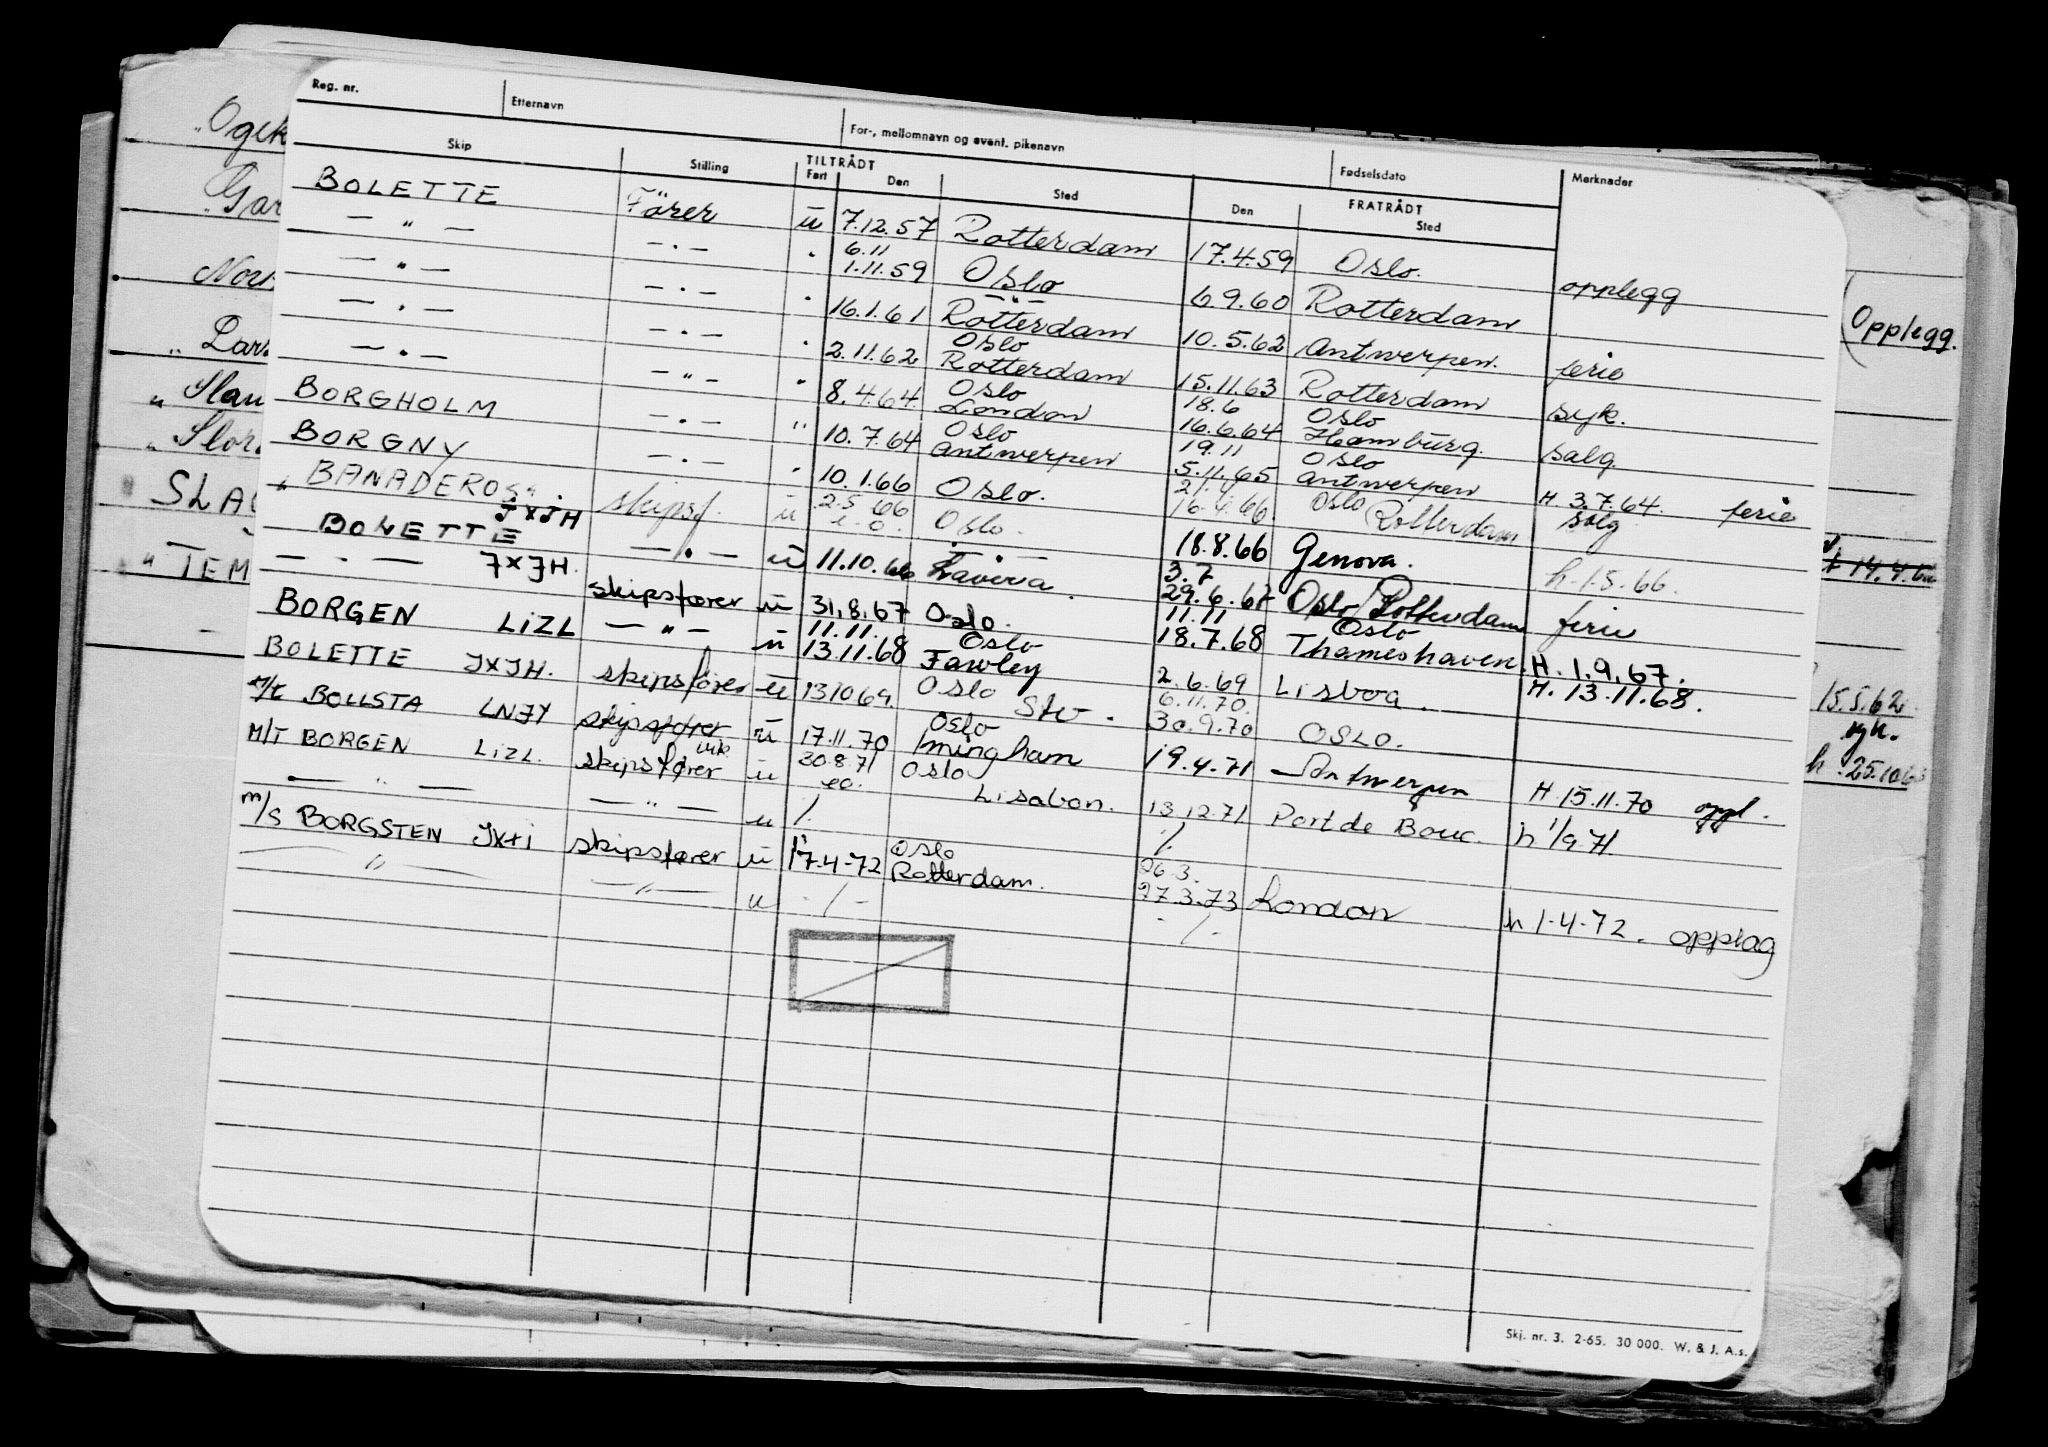 Reg. nr. Etternavn For-, mellomnavn og event. pikenavn Fødselsdato Merknader
Skip Stilling TILTRÅDT Fart Den Sted FRATRÅDT Den Sted
BOLETTE Förer u 7.12.57 Rotterdam 17.4.59 Oslo. opplegg
— " — — . — . 6.11 1.11.59 Oslo 6.9.60 Rotterdam
— " — — . — . 16.1.61 Rotterdam 10.5.62 Antwerpen. ferie
— . — — . — . 2.11.62 Oslo Rotterdam 15.11.63 Rotterdam syk.
— . — — " — " 8.4.64 Oslo London 18.6 16.6.64 Oslo Hamburg. salg
BORGHOLM — . — " 10.7.64 Oslo Antwerpen 19.11 5.11.65 Oslo Antwerpen H. 3.7.64. ferie
BORGNY — . — . 10.1.66 Oslo. 16.4.66 Oslo/Rotterdam salg
" BANADEROS skipsf. u 2.5.66 Oslo. 18.8.66 Genova. h. 1.5.66.
BOLETTE JXJH — . — u 11.10.66 3.7 29.6.67 Oslo/Rotterdam ferie
— . — JXJH. skipsfører u 31.8.67 Oslo. 11.11 18.7.68 Oslo Thameshaven. H. 1.9.67.
BORGEN LIZL — " — u 11.11. 13.11.68 Oslo Fawley 2.6.69 Lisboa. H. 13.11.68.
BOLETTE JXJH. skipsfører u 13.10.69 Oslo 6.11.70. 30.9.70 OSLO.
M/T BOLLSTA LNJY skipsfører u 17.11.70 Oslo Imingham 19.4.71 Antwerpen H. 15.11.70 oppl.
M/T BORGEN LIZL. skipsfører vik u 30.8.71 Oslo Lisabon. 13.12.71 Port de Bouc. h 1/9.71.
— " — — " — u /. /.
M/S BORGSTEN JXTI skipsfører u 17.4-72 Oslo Rotterdam. 26.3. 27.3.73 London h 1-4-72. opplag
— " — — " — u - / - - / -
Skj. nr. 3. 2-65. 30 000. W. & J. A.s.
Opplegg.
SLA
" TEM
15.5.62
syk.
h. 25.10.6